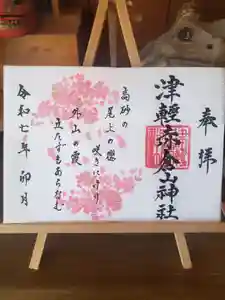 奉拝
津軽赤倉山神社
高砂の
尾上の櫻
咲きにけり
外山の霞
立たずもあらなむ
令和七年 卯月